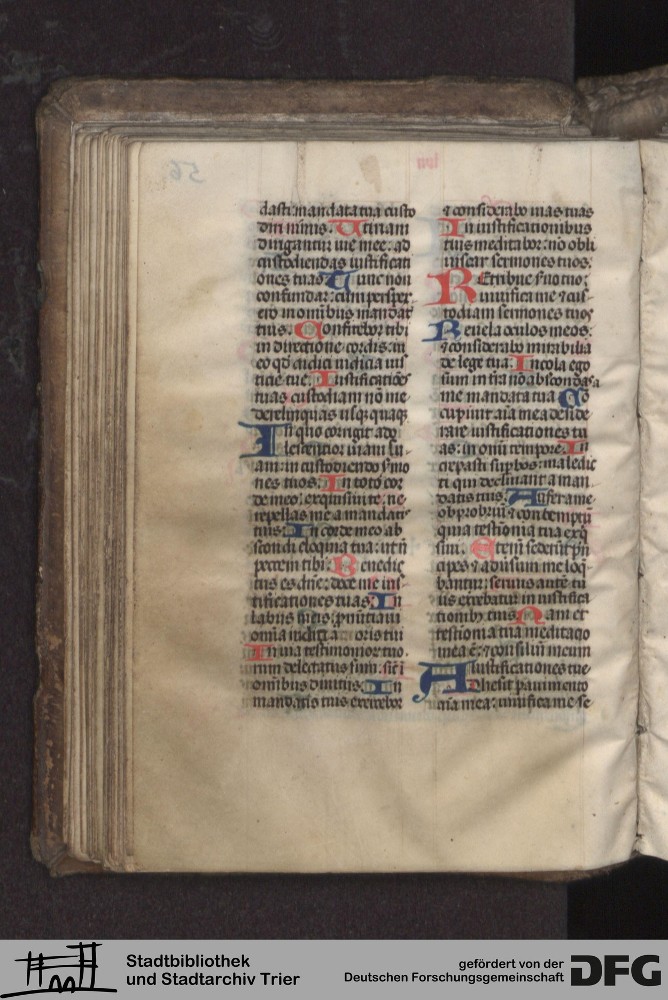 dasti mandata tua custo
diri nimis. Utinam
dirigantur vie mee: ad
custodiendas iustificati
ones tuas. Tunc non
confundar: cum perspex
ero in omnibus mandat
tuis. Confitebor tibi
in directione cordis: in
eo qd didici iudicia ius
ticie tue. Iustificacoēs
tuas custodiam nō me
derelinquas usqz quaqz
In quo corrigit ado
lescentior viam su
am: in custodiendo ſmo
nes tuos. In toto cor
de meo exquisiui te: ne
repellas me a mandatis
tuis. In corde meo ab
scondi eloquia tua: ut nō
peccem tibi. Benedic
tus es dn̄e: doce me ius
tificationes tuas. In
labiis meis: pnūtiaui
omīa iudicia oris tui
In via testimonior tuo
rum delectatus sum: sic ī
omībus diuitiis. In
mandatis tuis exercebor
⁊ considerabo vias tuas
In iustificationibus
tuis meditabor: nō obli
uiscar sermones tuos.
Retribue ſuo tuo:
viuifica me ⁊ cus
todiam sermones tuos
Reuela oculos meos:
⁊ considerabo mirabilia
de lege tua. Incola ego
sum in tr̄a nō abscondas a
me mandata tua. Cō
cupiuit aīa mea deside
rare iustificationes tu
as: in omī tempore. In
crepasti supbos: maledic
ti qui declinant a man
datis tuis. Aufer a me
obprobriū ⁊ contemptū
quia testīonia tua exq̄
siui. Etenī sederūt prī
cipes ⁊ aduersum me loq̄
bantur: seruus autē tu
us exercebatur in iustifica
tionibz tuis. Nam et
testīonia tua meditatio
mea ē: ⁊ consiliū meum
iustificationes tue
Adhesit pauimento
aīa mea: viuifica me se
Stadtbibliothek
und Stadtarchiv Trier
gefördert von der
Deutschen Forschungsgemeinschaft
DFG